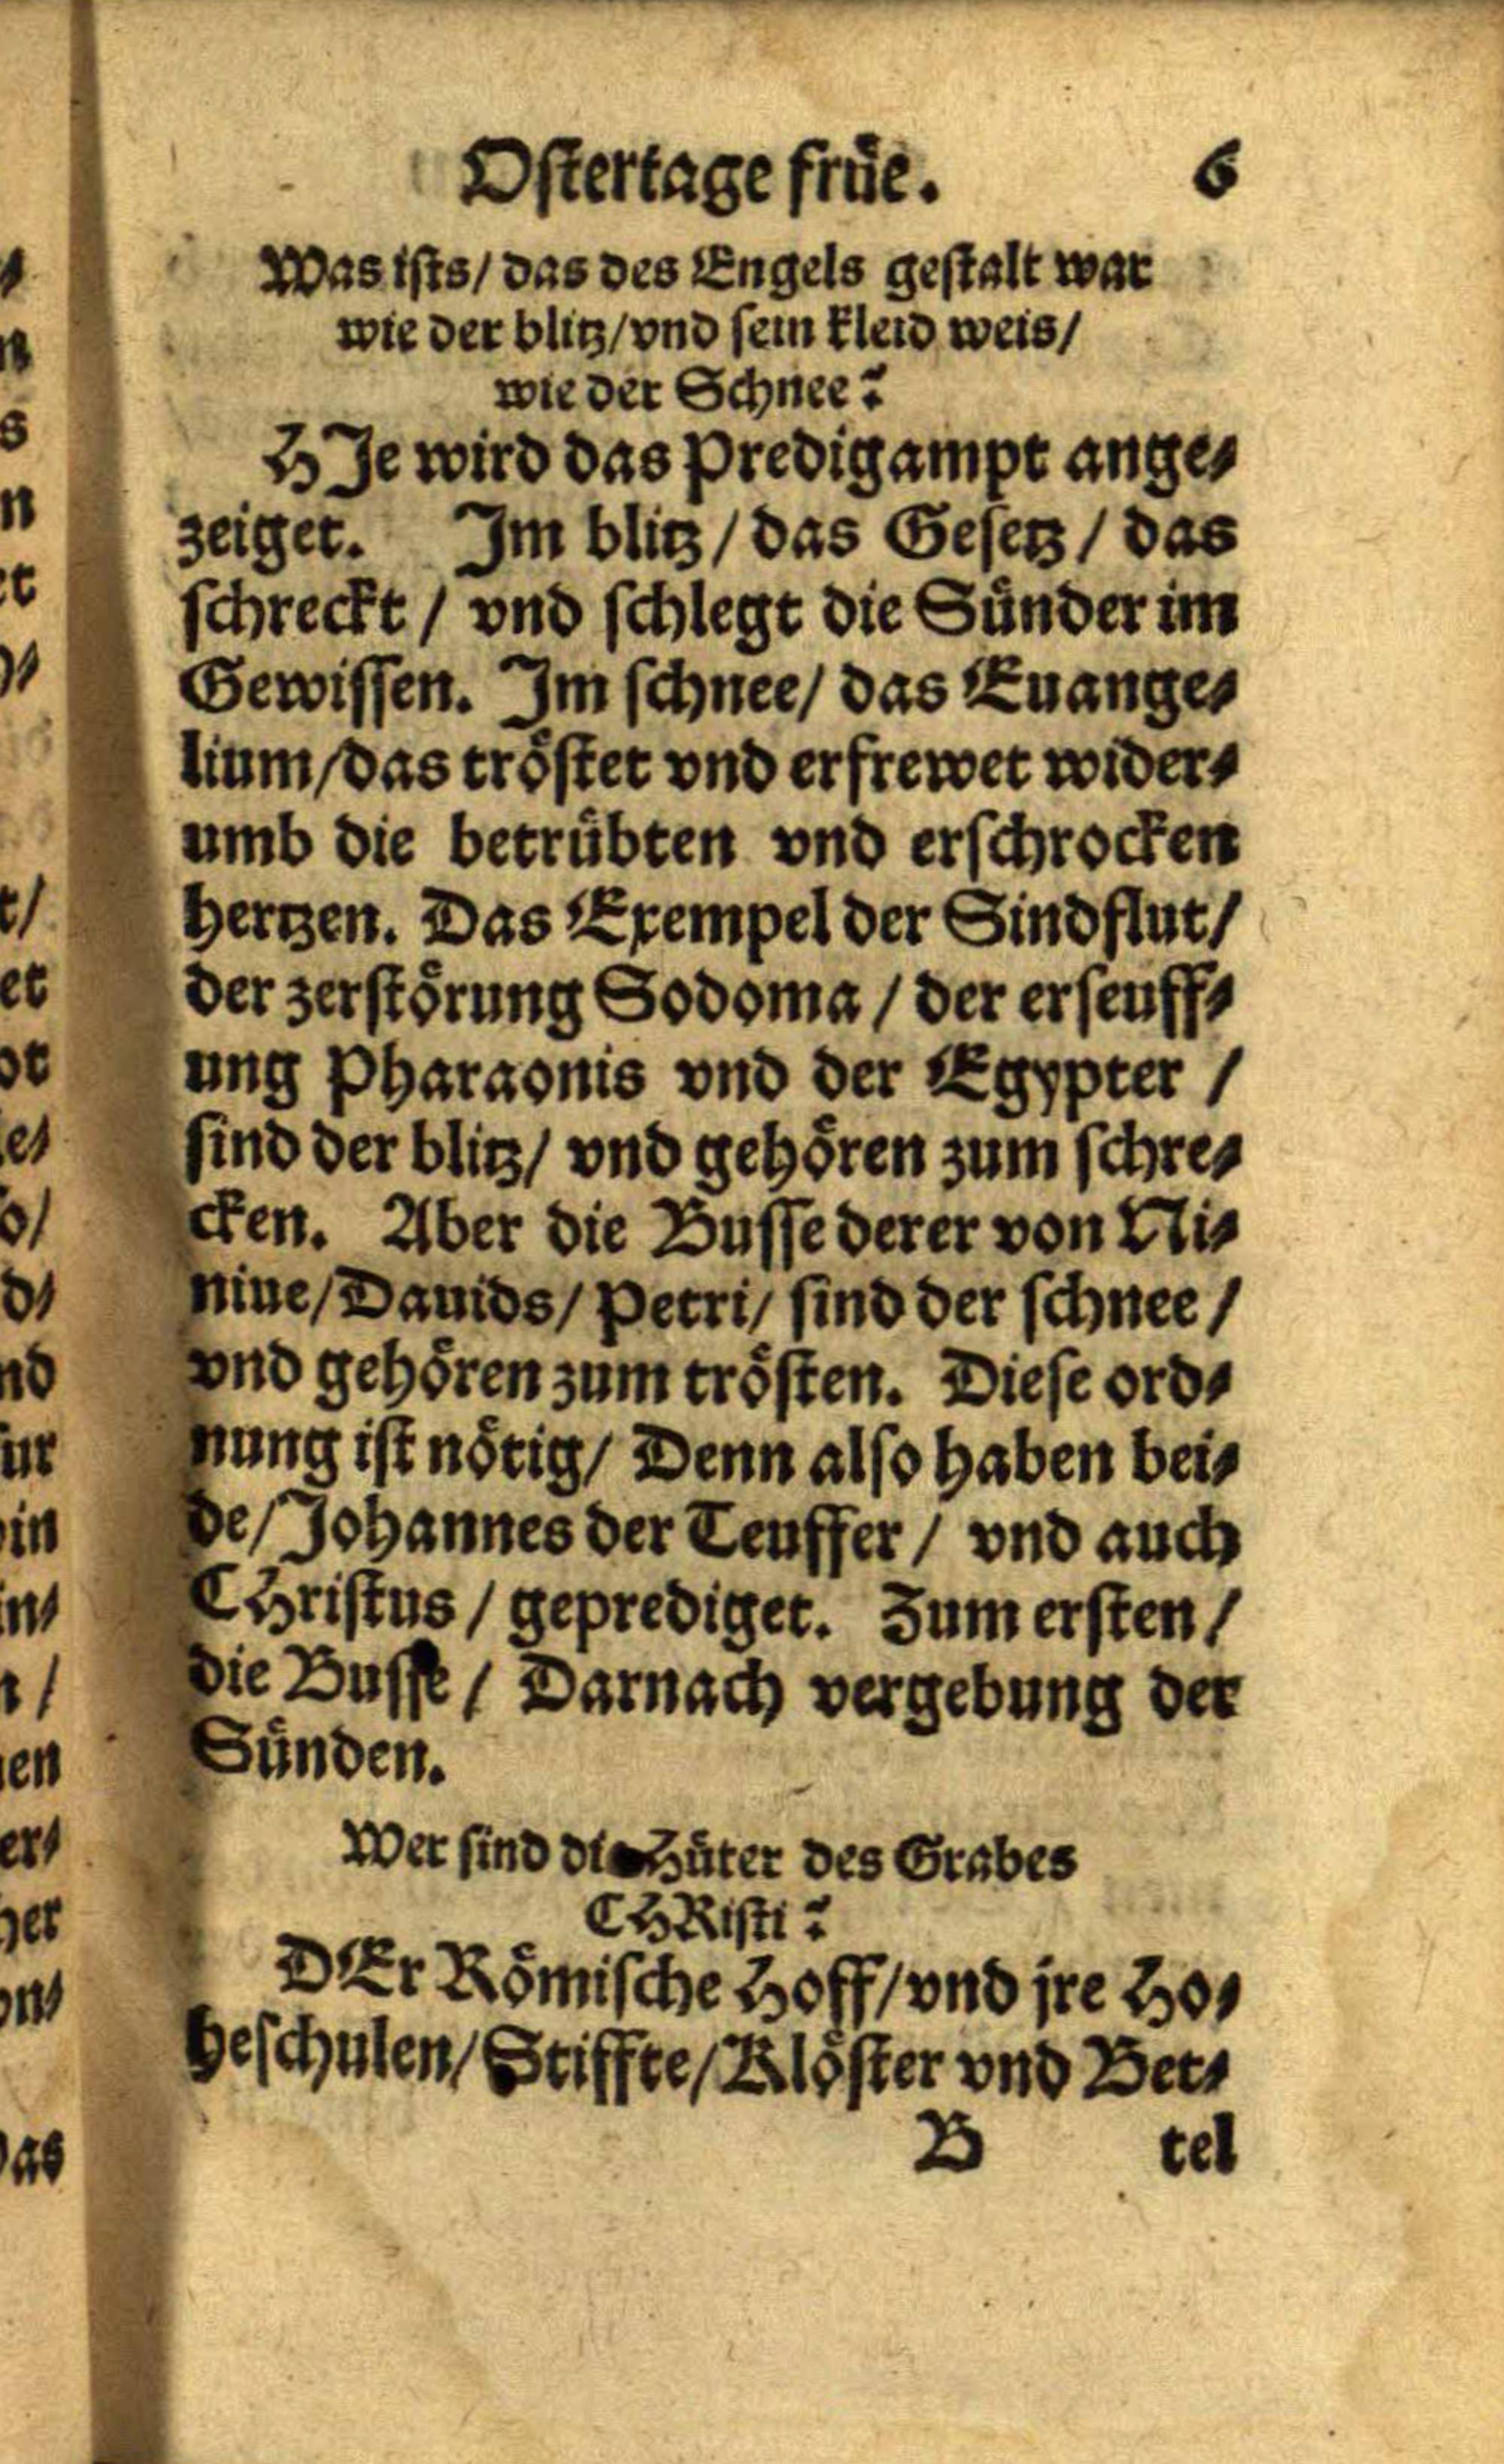 Oſtertage früe. 6
Was iſts / das des Engels geſtalt war
wie der blitz / vnd ſein kleid weis /
wie der Schnee?
HJe wird das Predigampt ange⸗
zeiget. Jm blitz / das Geſetz / das
ſchreckt / vnd ſchlegt die Sünder im
Gewiſſen. Jm ſchnee / das Euange⸗
lium / das tröſtet vnd erfrewet wider⸗
umb die betrübten vnd erſchrocken
hertzen. Das Exempel der Sindflut /
der zerſtörung Sodoma / der erſeuff⸗
ung Pharaonis vnd der Egypter /
ſind der blitz / vnd gehören zum ſchre⸗
cken. Aber die Buſſe derer von Ni⸗
niue / Dauids / Petri / ſind der ſchnee /
vnd gehören zum tröſten. Dieſe ord⸗
nung iſt nötig / Denn alſo haben bei⸗
de / Johannes der Teuffer / vnd auch
CHriſtus / geprediget. Zum erſten /
die Buſſe / Darnach vergebung der
Sünden.
Wer ſind die Hüter des Grabes
CHRiſti?
DEr Römiſche Hoff / vnd jre Ho⸗
heſchulen / Stiffte / Klöſter vnd Bet⸗
B tel